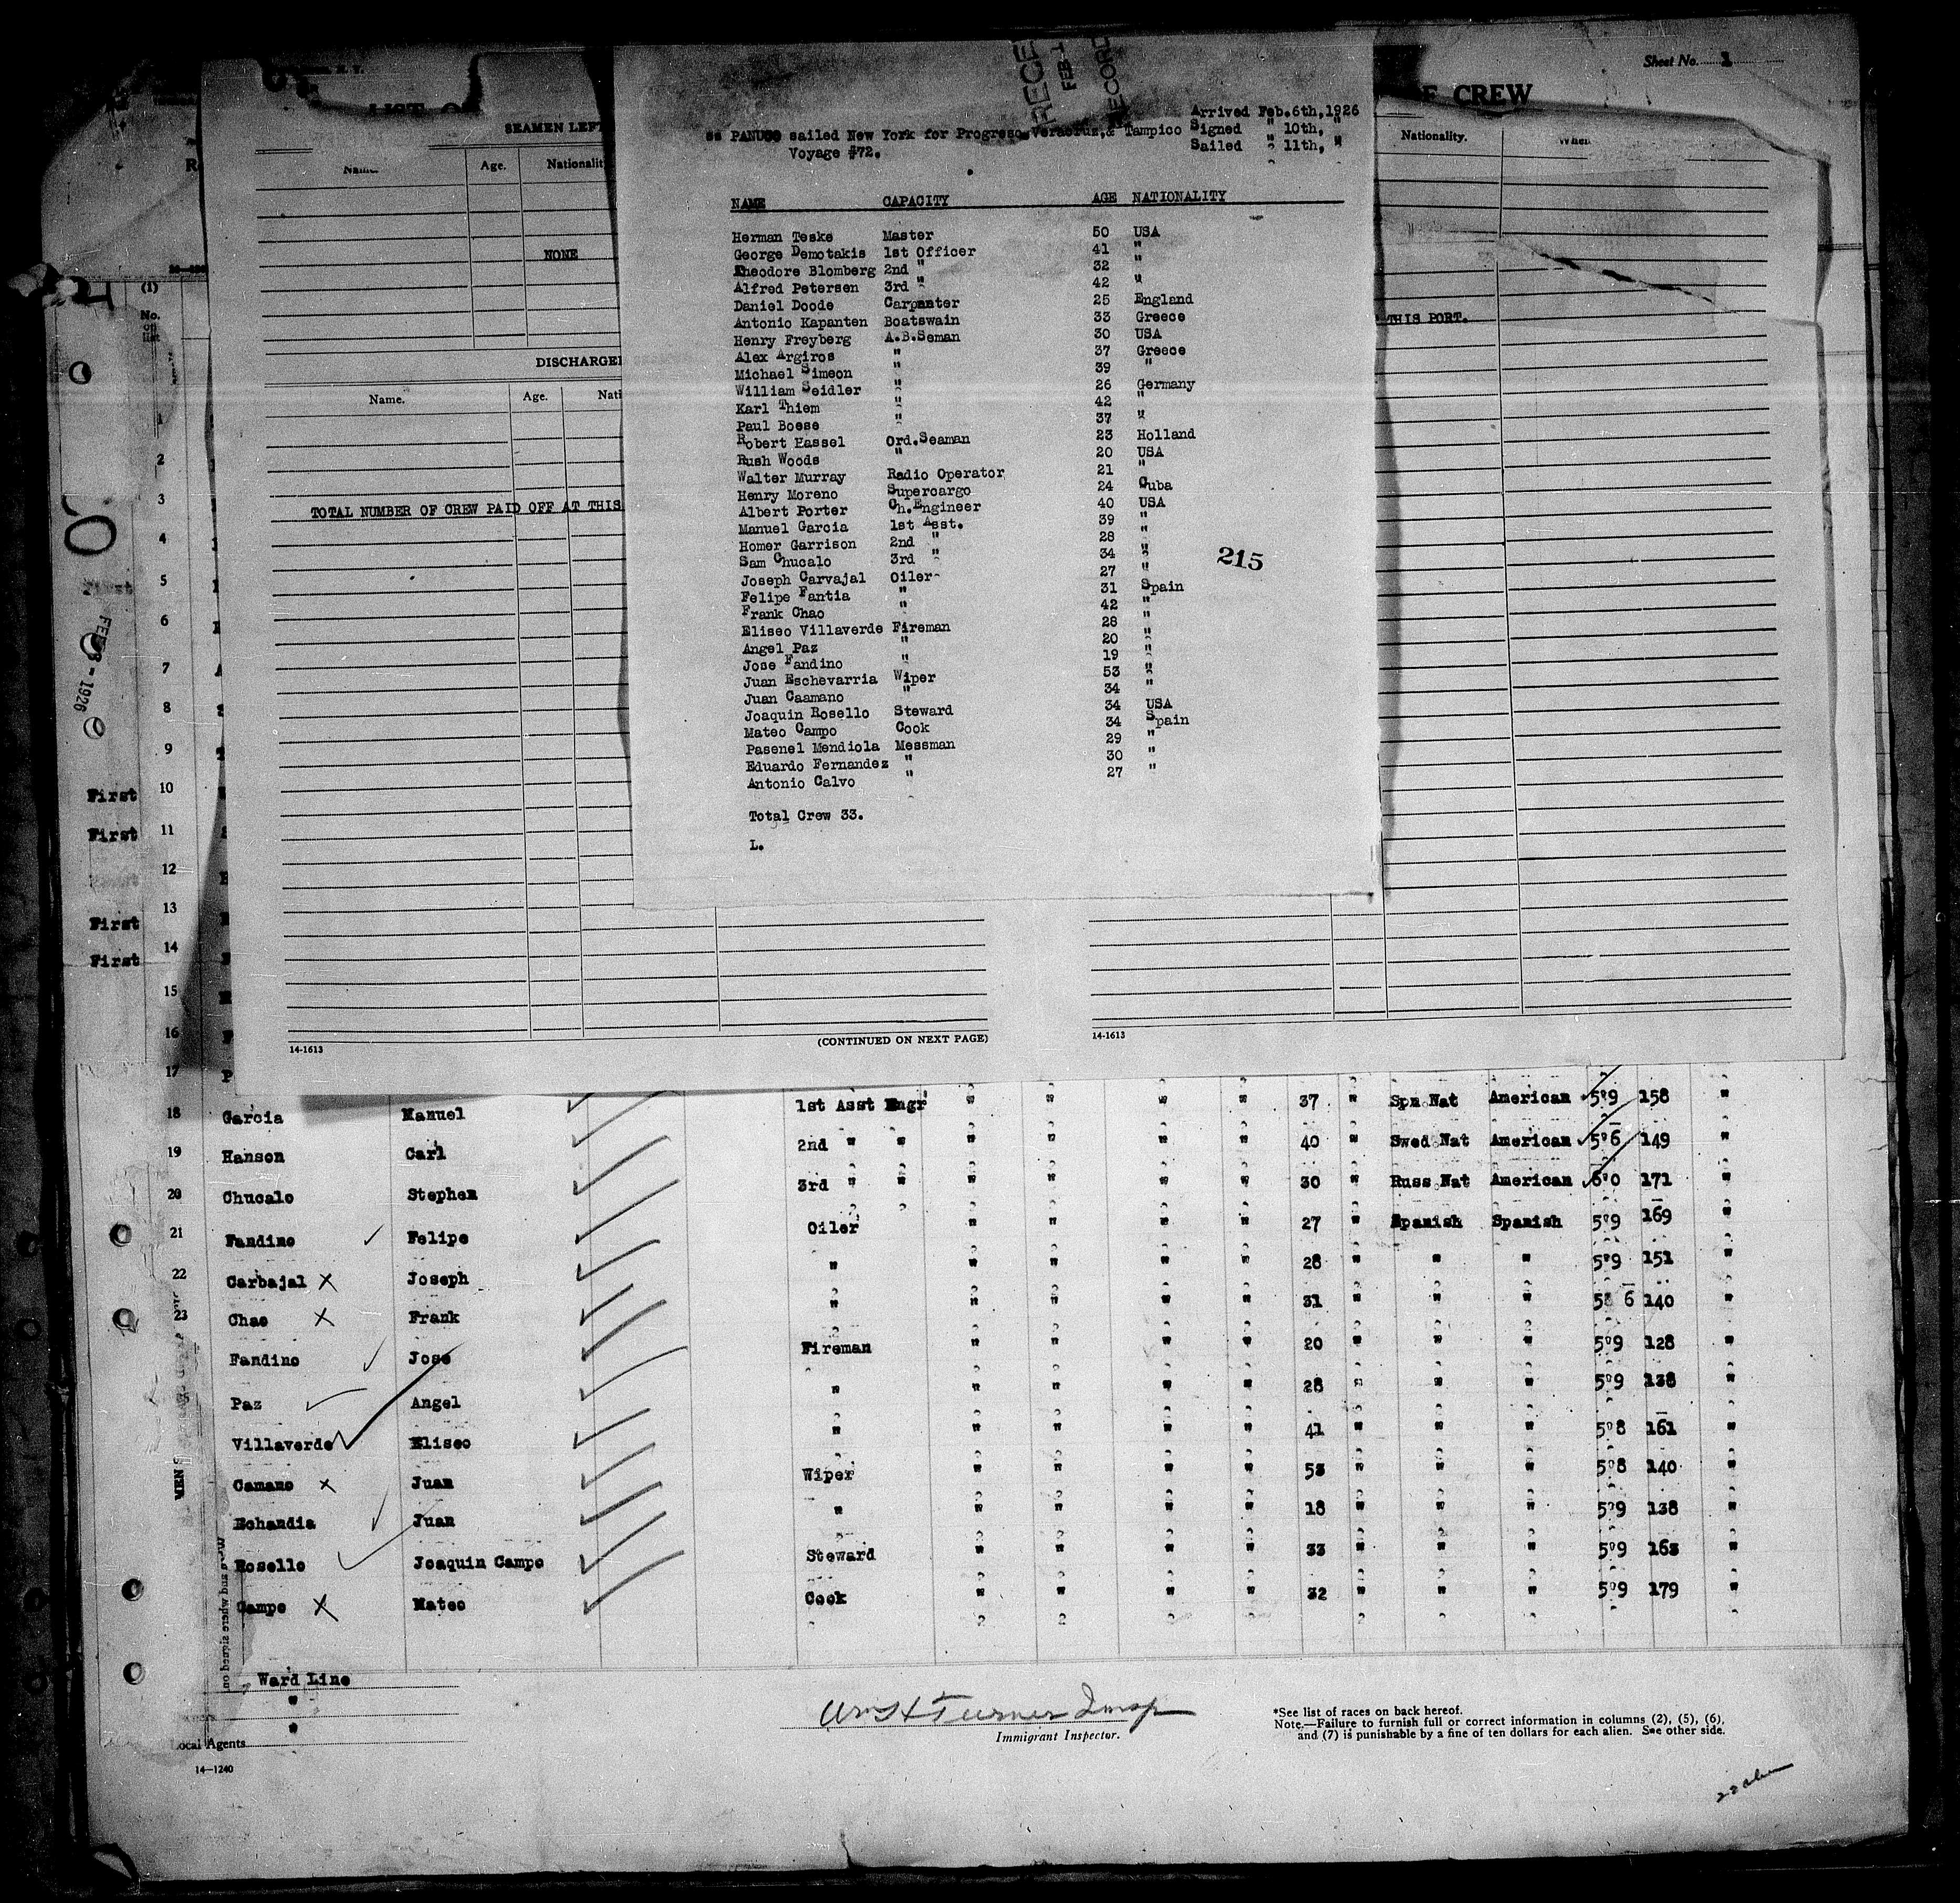 Sheet No. 1
F CREW
SEAMEN LEFT
Name. Age. Nationalit
NONE
DISCHARGE
Name. Age. Nati
TOTAL NUMBER OF CREW PAID OFF AT THIS
Nationality. When
THIS PORT.
RECE
FEB 1
RECORD
Arrived Feb.6th,1926
ss PANUCO sailed New York for Progreso Veracruz,& Tampico Signed " 10th, "
Voyage #72. Sailed " 11th, "
NAME CAPACITY AGE NATIONALITY
Herman Teske Master 50 USA
George Demotakis 1st Officer 41 "
Theodore Blomberg 2nd " 32 "
Alfred Petersen 3rd " 42 "
Daniel Doode Carpanter 25 England
Antonio Kapanten Boatswain 33 Greece
Henry Freyberg A.B.Seman 30 USA
Alex Argiros " 37 Greece
Michael Simeon " 39 "
William Seidler " 26 Germany
Karl Thiem " 42 "
Paul Boese " 37 "
Robert Hassel Ord.Seaman 23 Holland
Rush Woods " 20 USA
Walter Murray Radio Operator 21 "
Henry Moreno Supercargo 24 Cuba
Albert Porter Ch.Engineer 40 USA
Manuel Garcia 1st Asst. 39 "
Homer Garrison 2nd " 28 "
Sam Chucalo 3rd " 34 "
Joseph Carvajal Oiler 27 "
Felipe Fantia " 31 Spain
Frank Chao " 42 "
Eliseo Villaverde Fireman 28 "
Angel Paz " 20 "
Jose Fandino " 19 "
Juan Eschevarria Wiper 53 "
Juan Caamano " 34 "
Joaquin Rosello Steward 34 USA
Mateo Campo Cook 34 Spain
Pasenel Mendiola Messman 29 "
Eduardo Fernandez " 30 "
Antonio Calvo " 27 "
Total Crew 33.
L.
215
(1)
No. on list
1
2
3
4
First 5
6
7
8
9
First 10
First 11
First 12
First 13
First 14
15
16
17
FEB 8 - 1926
14-1613 (CONTINUED ON NEXT PAGE) 14-1613
18 Garcia Manuel 1st Asst Engr " " " " 37 " Spn Nat American 5'9 158 "
19 Hanson Carl 2nd " " " " " " 40 " Swed Nat American 5'6 149 "
20 Chucalo Stephen 3rd " " " " " " 30 " Russ Nat American 6'0 171 "
21 Fandino Felipe Oiler " " " " 27 " Spanish Spanish 5'9 169 "
22 Carbajal X Joseph " " " " " 28 " " " 5'9 151 "
23 Chao X Frank " " " " " 31 " " " 5 6 140 "
Fandino Jose Fireman " " " " 20 " " " 5'9 128 "
Paz Angel " " " " " 28 " " " 5'9 138 "
Villaverde Eliseo " " " " " 41 " " " 5'8 161 "
Camano x Juan Wiper " " " " 53 " " " 5'8 140 "
Echandia Juan " " " " " 18 " " " 5'9 138 "
Rosello Joaquin Campo Steward " " " " 33 " " " 5'9 163 "
Campo X Mateo Cook " " " " 32 " " " 5'9 179 "
and where signed on
Ward Line
"
"
Local Agents
14-1240
Wm H Turner Insp
Immigrant Inspector.
*See list of races on back hereof.
Note.—Failure to furnish full or correct information in columns (2), (5), (6),
and (7) is punishable by a fine of ten dollars for each alien. See other side.